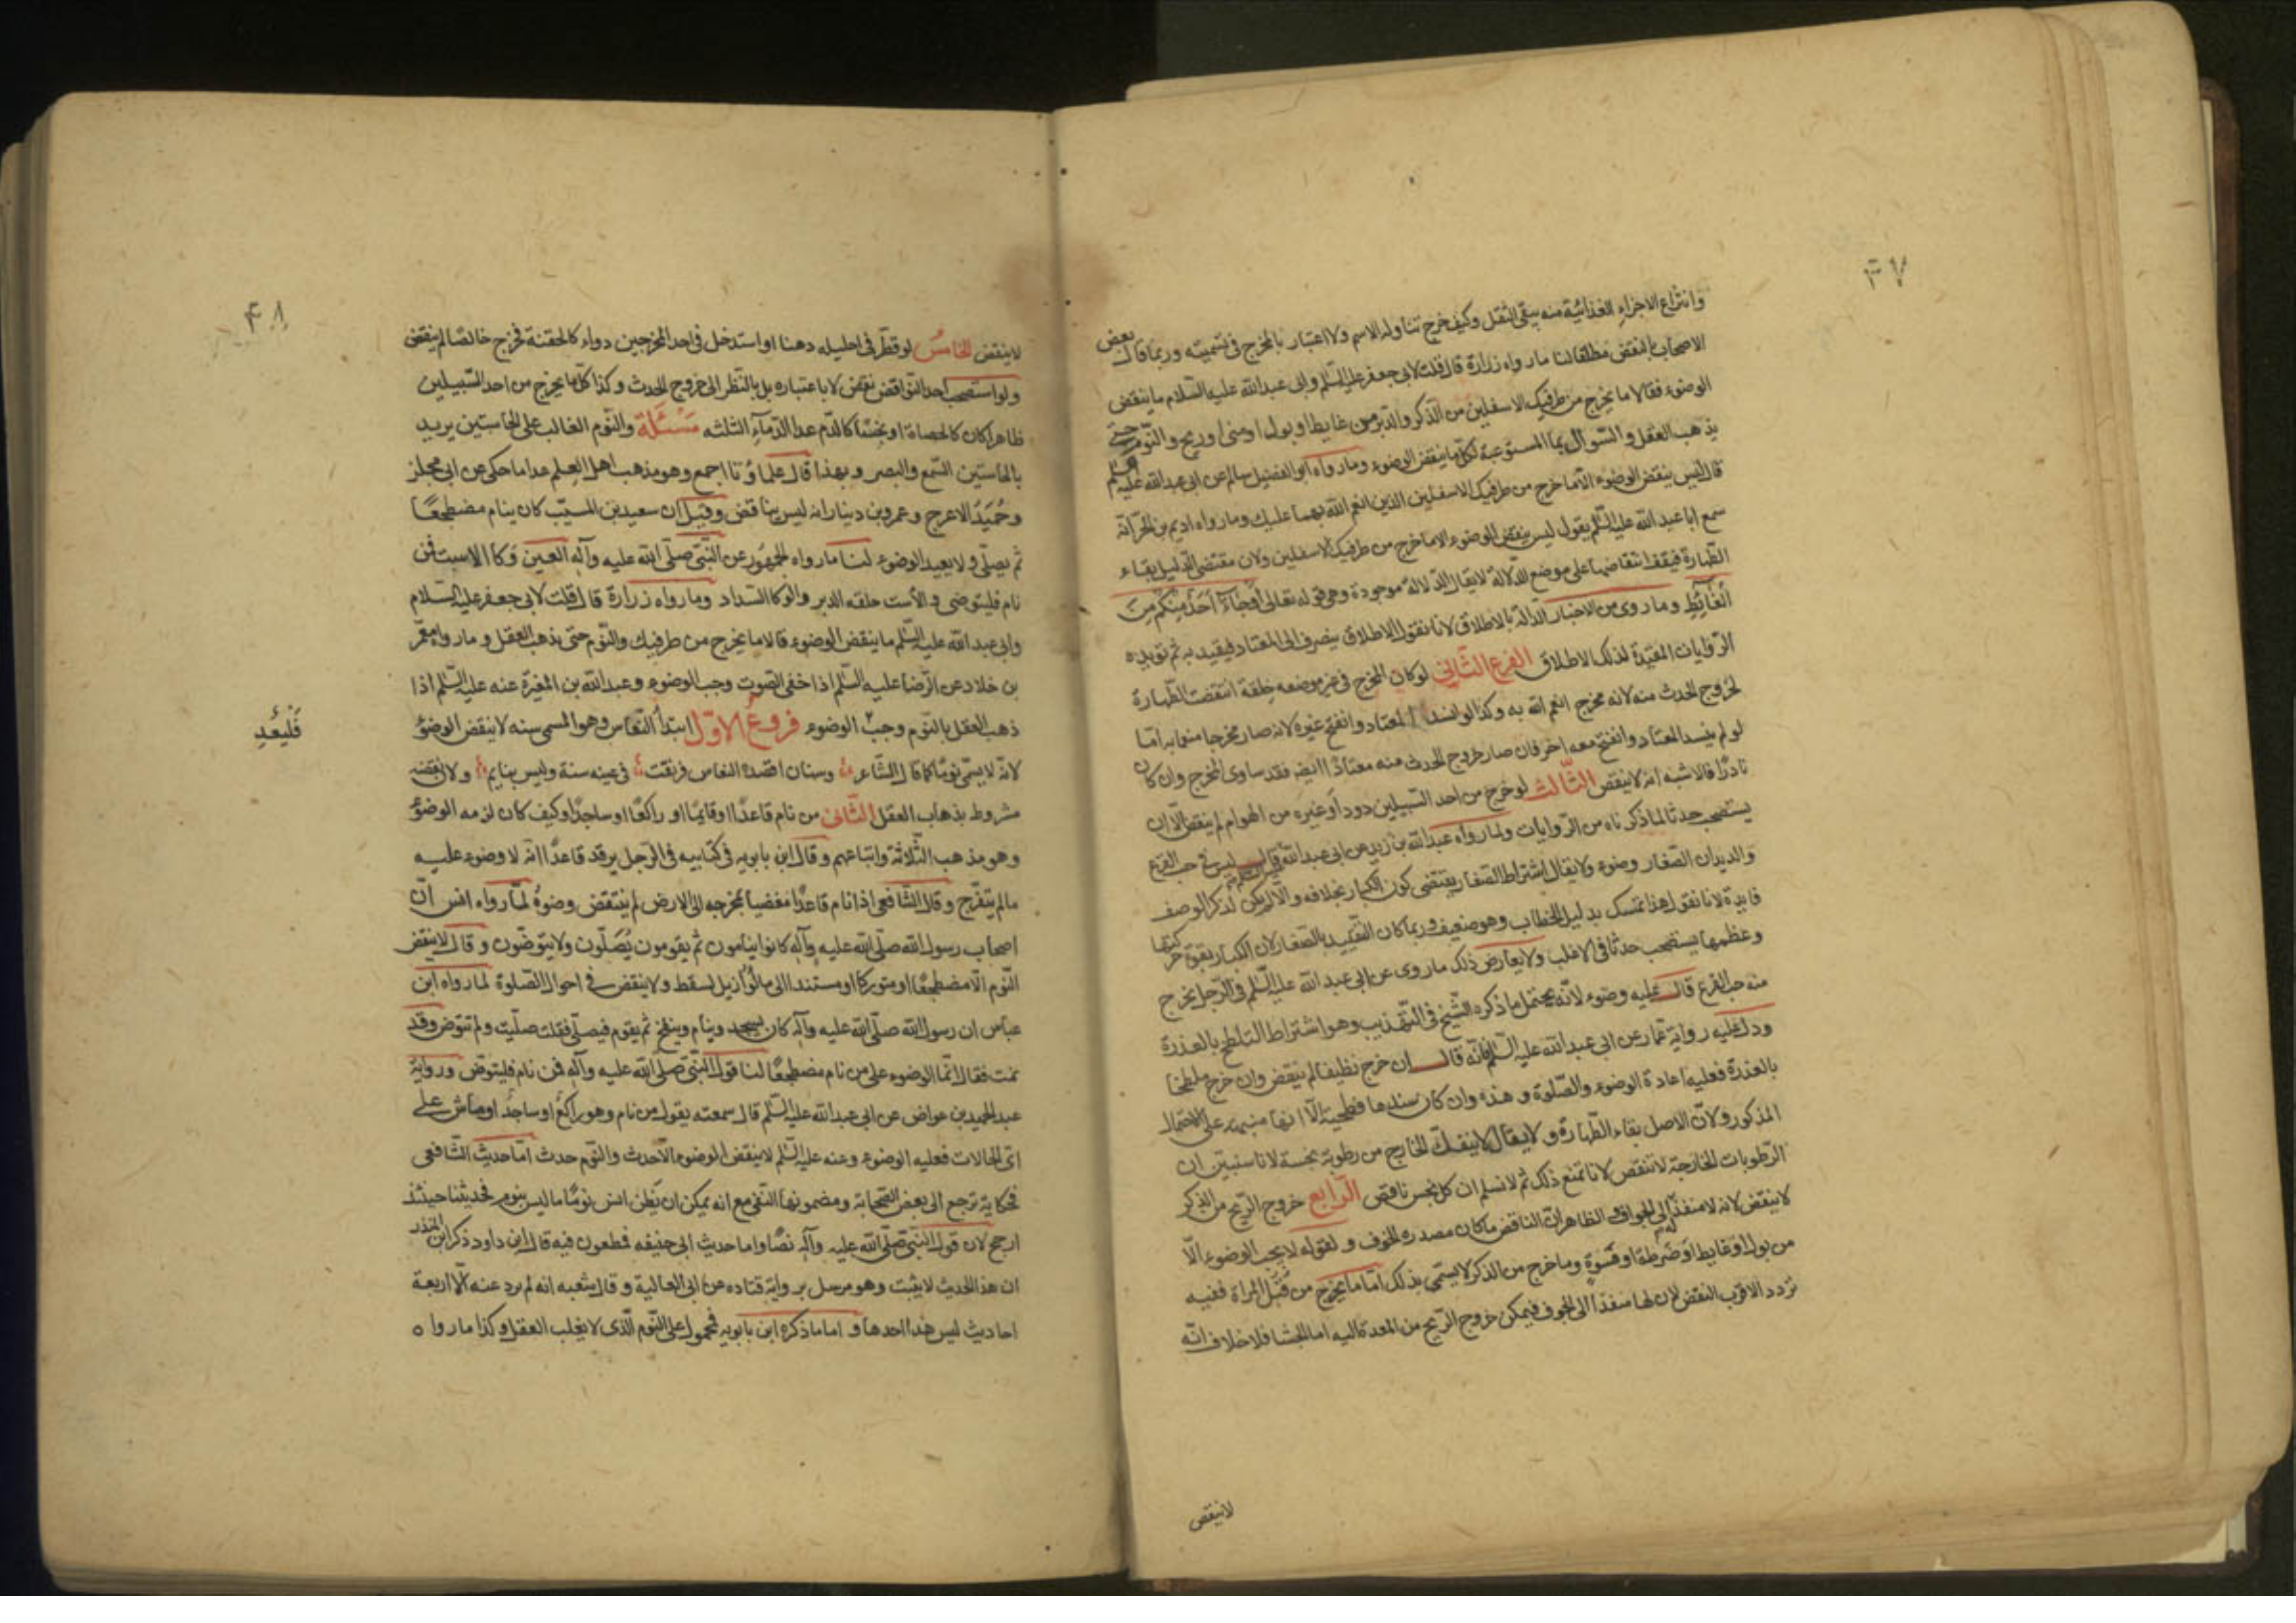 ۴۷
وانتزاع الاجزاء الغذائية منه يبقى الثقل وكيف خرج تناوله الاسم ولا اعتبار بالمخرج فى تسميته وربما قال بعض
الاصحاب بالنقض مطلقا لنا ما رواه زرارة قال قلت لابى جعفر عليه السلم وابى عبدالله عليه السلام ما ينقض
الوضوء فقالا ما يخرج من طرفيك الاسفلين من الذكر والدبر من غايط او بول او منى او ريح والنوم حتى
يذهب العقل و السّوال بما المستوعبة لكل ما ينقض الوضوء وما رواه ابو الفضيل سالم عن ابى عبدالله عليه السلم
قال ليس ينقض الوضوء الا ما خرج من طرفيك الاسفلين الذين انعم الله بهما عليك وما رواه اديم بن الحر انه
سمع ابا عبدالله عليه السّلم يقول ليس ينقض الوضوء الا ما خرج من طرفيك الاسفلين ولان مقتضى الدليل بقاء
الطهارة فيقف انتقاضها على موضع الدلالة لا يقال الدلالة موجودة وهى قوله تعالى اوجاء احد منكم من
الغائط وما روى من الاخبار الدالة بالاطلاق لانا نقول الاطلاق ينصرف الى المعتاد فيقيد به ثم تؤيده
الروايات المقيدة لذلك الاطلاق الفرع الثانى لو كان المخرج فى غير موضعه خلقة انتقضت الطهارة
لخروج الحدث منه لانه مخرج انعم الله به وكذا لو انسد المعتاد وانفتح غيره لانه صار مخرجا منعما به امّا
لو لم ينسد المعتاد وانفتح معه اخر فان صار خروج الحدث منه معتادا انقض فقد ساوى المخرج وان كان
نادرا فالاشبه انه لا ينقض الثالث لو خرج من احد السبيلين دود او غيره من الهوام لم ينقض الا ان
يستصحب حدثا لما ذكرناه من الروايات ولما رواه عبدالله بن زيد عن ابى عبدالله عليه السلم قال ليس فى حب القرع
والديدان الصغار وضوء ولا يقال اشتراط الصغار يقتضى كون الكبار بخلافه والا لم يكن لذكر الوصف
فايدة لانا نقول هذا تمسك بدليل الخطاب وهو ضعيف وربما كان التقييد بالصغار لان الكبار بقوة حركتها
وعظمها يستصحب حدثا فى الاغلب ولا يعارض ذلك ما روى عن ابى عبدالله عليه السّلم فى الرجل يخرج
منه حب القرع قال عليه وضوء لانه يحتمل ما ذكره الشيخ فى التهذيب وهو اشتراط التلطخ بالعذرة
ودل عليه رواية عمار عن ابى عبدالله عليه السّلم فانه قال ان خرج نظيفا لم ينقض وان خرج ملطخا
بالعذرة فعليه اعادة الوضوء والصلوة وهذه وان كان سندها فطحية الا انها منبهة على الاحتمال
المذكور ولان الاصل بقاء الطهارة و لا يقال لا ينفك الخارج من رطوبة نجسة لانا سنبين ان
الرطوبات الخارجة لا تنقض لانا نمنع ذلك ثم لا نسلم ان كل نجس ناقض الرابع خروج الريح من الذكر
لا ينقض لانه لا منفذ له الى الجواف والظاهر ان الناقض ما كان مصدره الجوف و لقوله لا يجب الوضوء الا
من بول او غايط او ضرطة او فسوة وما خرج من الذكر لا يسمى بذلك امّا ما يخرج من قبل المراة ففيه
تردد الاقرب النقض لان لها منفذا الى الجوف فيمكن خروج الريح من المعدة اليه اما الجشا فلا خلاف انه
لا ينقض
۴۸
لا ينقض الخامس لو قطر فى احليله دهنا او استدخل فى احد المخرجين دواء كالحقنة فخرج خالصا لم ينقض
ولو استصحب احد النواقض نقض لا باعتباره بل بالنظر الى خروج الحدث وكذا كل ما يخرج من احد السبيلين
ظاهرا كان كالحصاة او نجسا كالدم عدا الدمآء الثلثه مسئلة والنوم الغالب على الحاستين يريد
بالحاستين السمع والبصر و بهذا قال علماؤنا اجمع وهو مذهب اهل العلم عدا ما حكى عن ابى مجلز
وحُمَيد الاعرج وعمرو بن دينار انه ليس بناقض وقيل ان سعيد بن المسيّب كان ينام مضطجعًا
ثم يصلّى ولا يعيد الوضوء لنا ما رواه الجمهور عن النبّى صلّى الله عليه وآله العين وكا الاسبت فمن
نام فليتوضى و الأست حلقه الدبر والوكا السداد وما رواه زرارة قال قلت لابى جعفر عليه السلام
وابى عبدالله عليه السّلم ما ينقض الوضوء قالا ما يخرج من طرفيك والنوم حتى يذهب العقل و ما رواه معمّر
بن خلاد عن الرّضا عليه السّلم اذا خفى الصوت وجب الوضوء وعبدالله بن المغيرة عنه عليه السّلم اذا
ذهب العقل بالنوم وجب الوضوء فروع الاوّل ابتدأ النعاس وهو المسمى سنه لا ينقض الوضؤ
فَليُعِدِ
لانه لا يسمى نوما كما قال الشاعر وسنان اقصده النعاس فرنقت فى عينه سنة وليس بنايم ولان نقضه
مشروط بذهاب العقل الثانى من نام قاعدا او قايما او راكعا او ساجدا وكيف كان لزمه الوضؤ
وهو مذهب الثلاثة واتباعهم وقال ابن بابويه فى كتابيه فى الرجل يرقد قاعدا انه لا وضوء عليه
مالم يتفرّج وقال الشافعى اذا نام قاعدًا مفضيا بمخرجه الى الارض لم ينتقض وضوءُه لما رواه انس انّ
اصحاب رسول الله صلّى الله عليه وآله كانوا ينامون ثم يقومون يُصَلّون ولا يتوضّون وقال لا ينقض
النوم الا مضطجعا او متوركا او مستندا الى ما لو ازيل لسقط ولا ينقض فى احوال الصلوة لما رواه ابن
عباس ان رسول الله صلّى الله عليه وآله كان يسجد وينام وينفخ ثم يقوم فيصلّى فقلت صلّيت ولم تتوض وقد
نمت فقال انّما الوضوء على من نام مضطجعًا لنا قول النّبى صلّى الله عليه وآله فمن نام فليتوضّ ورواية
عبدالحميد بن عواض عن ابى عبدالله عليه السّلم قال سمعته يقول من نام وهو راكع او ساجد او ماش على
اى الحالات فعليه الوضوء وعنه عليه السّلم لا ينقض الوضوء الا حدث والنوم حدث امّا حديث الشافعى
فحكاية ترجع الى بعض الصحابة ومضمونها النفى مع انه يمكن ان يظن انس نوما ما ليس بنوم فحديثنا حينئذ
ارجح لان قول النبى صلّى الله عليه وآله نصّا واما حديث ابى حنيفه فمطعون فيه قال ابن داود ذكر ابن المنذر
ان هذا الحديث لا يثبت وهو مرسل برواية قتاده عن ابى العالية وقال شعبه انه لم يرد عنه الّا اربعة
احاديث ليس هذا احدها و اما ما ذكره ابن بابويه فمحمول على النوم الّذى لا يغلب العقل وكذا ما رواه